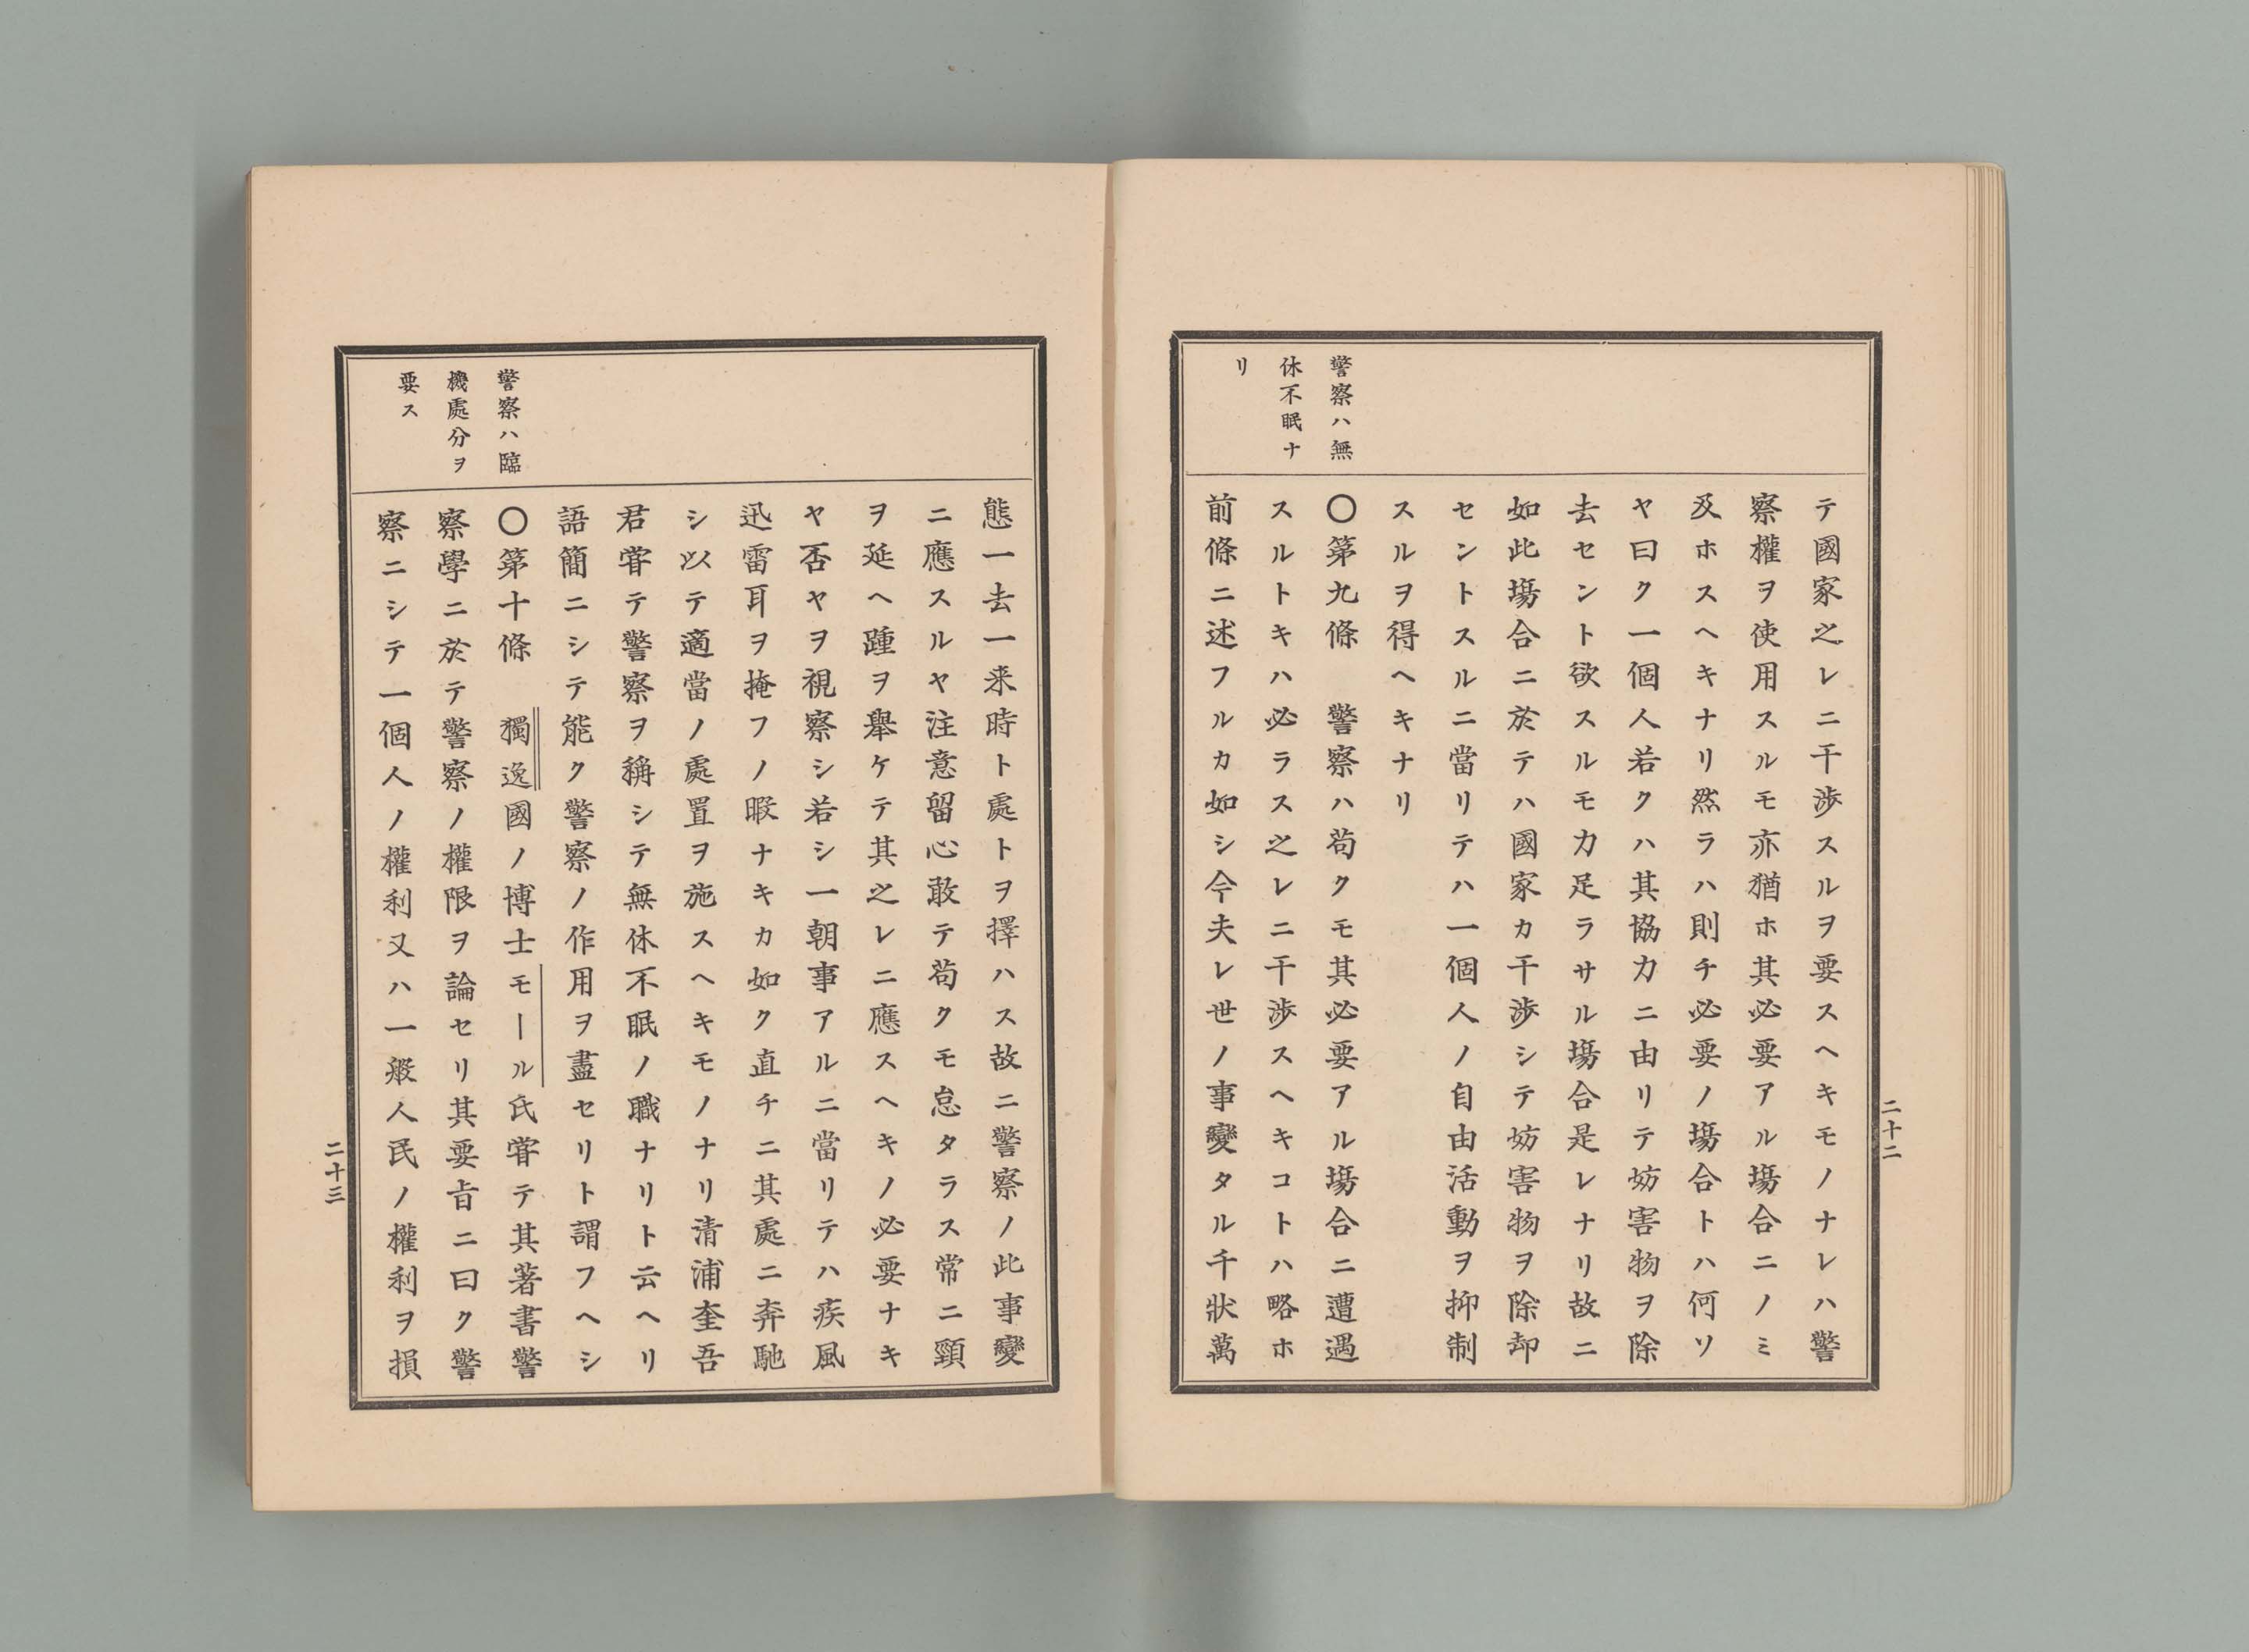 警察ハ無
休不眠ナ
リ
テ國家之レニ干渉スルヲ要スヘキモノナレハ警
察權ヲ使用スルモ亦猶ホ其必要アル塲合ニノミ
及ホスヘキナリ然ラハ則チ必要ノ塲合トハ何ソ
ヤ曰ク一個人若クハ其協力ニ由リテ妨害物ヲ除
去セント欲スルモ力足ラサル塲合是レナリ故ニ
如此塲合ニ於テハ國家カ干渉シテ妨害物ヲ除却
セントスルニ當リテハ一個人ノ自由活動ヲ抑制
スルヲ得ヘキナリ
〇第九條　警察ハ苟クモ其必要アル塲合ニ遭遇
スルトキハ必ラス之レニ干渉スヘキコトハ略ホ
前條ニ述フルカ如シ今夫レ世ノ事變タル千狀萬
二十二
警察ハ臨
機處分ヲ
要ス
態一去一来時ト處トヲ擇ハス故ニ警察ノ此事變
ニ應スルヤ注意留心敢テ苟クモ怠タラス常ニ頸
ヲ延ヘ踵ヲ舉ケテ其之レニ應スヘキノ必要ナキ
ヤ否ヤヲ視察シ若シ一朝事アルニ當リテハ疾風
迅雷耳ヲ掩フノ暇ナキカ如ク直チニ其處ニ奔馳
シ以テ適當ノ處置ヲ施スヘキモノナリ清浦奎吾
君甞テ警察ヲ稱シテ無休不眠ノ職ナリト云ヘリ
語簡ニシテ能ク警察ノ作用ヲ盡セリト謂フヘシ
〇第十條　獨逸國ノ博士モール氏甞テ其著書警
察學ニ於テ警察ノ權限ヲ論セリ其要旨ニ曰ク警
察ニシテ一個人ノ權利又ハ一般人民ノ權利ヲ損
二十三